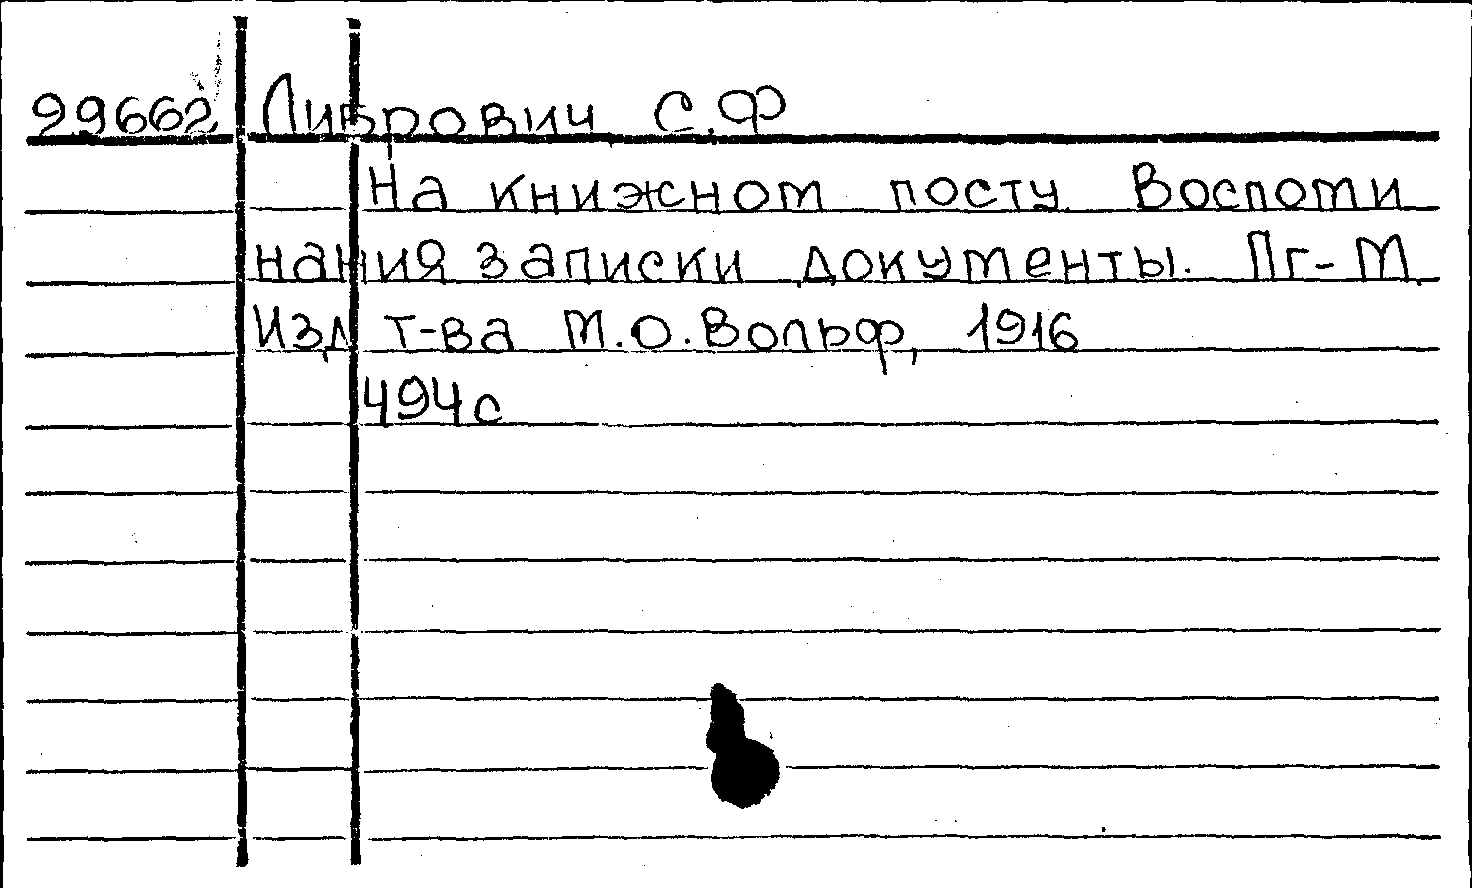 99662 Либрович С.Ф
На книжном посту Воспоми
нания записки документы. Пг-М
Изд т-ва М.О.Вольф, 1916
494с